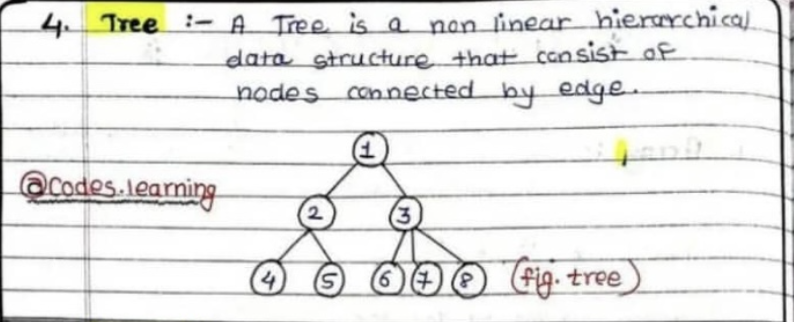 4. Tree :- A Tree is a non linear hierarchical
data structure that consist of
nodes connected by edge.
1
@codes.learning
2 3
4 5 6 7 8 (fig. tree)